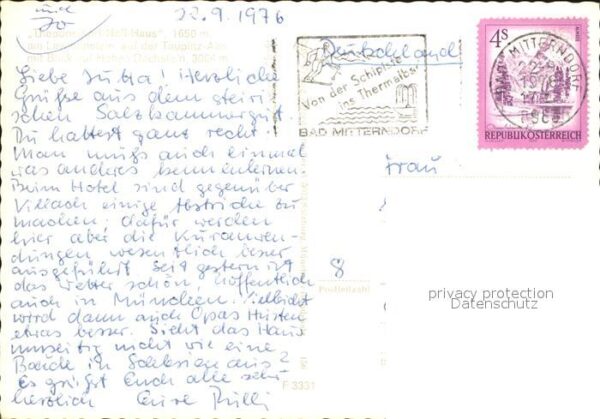 und
Jo
22.9.1976
"Theodor-Karl-Holl-Haus", 1650 m
am Lawinenstein auf der Tauplitz-Alm
mit Blick auf Hohen Dachstein 3004 m
Deutschland
Liebe Jutta! Herzliche
Grüße aus dem steiri
schen Salzkammergut.
Du hattest ganz recht.
Man muß auch einmal
was anderes kennenlernen.
Beim Hotel sind gegenüber
Villach einige Abstriche zu
machen; dafür werden
hier aber die Kuranwen-
dungen wesentlich besser
ausgeführt. Seit gestern ist
das Wetter schön, hoffentlich
auch in München. Vielleicht
wird dann auch Opas Husten
etwas besser. Sieht das Haus
umseitig nicht wie eine
Baude in Schlesien aus?
Es grüßt Euch alle sehr
herzlich Eure
Von der Schipiste
ins Thermalbad
BAD MITTERNDORF
4S
REPUBLIK ÖSTERREICH
BAD MITTERNDORF
Frau
8
Postleitzahl
privacy protection
Datenschutz
F 3331